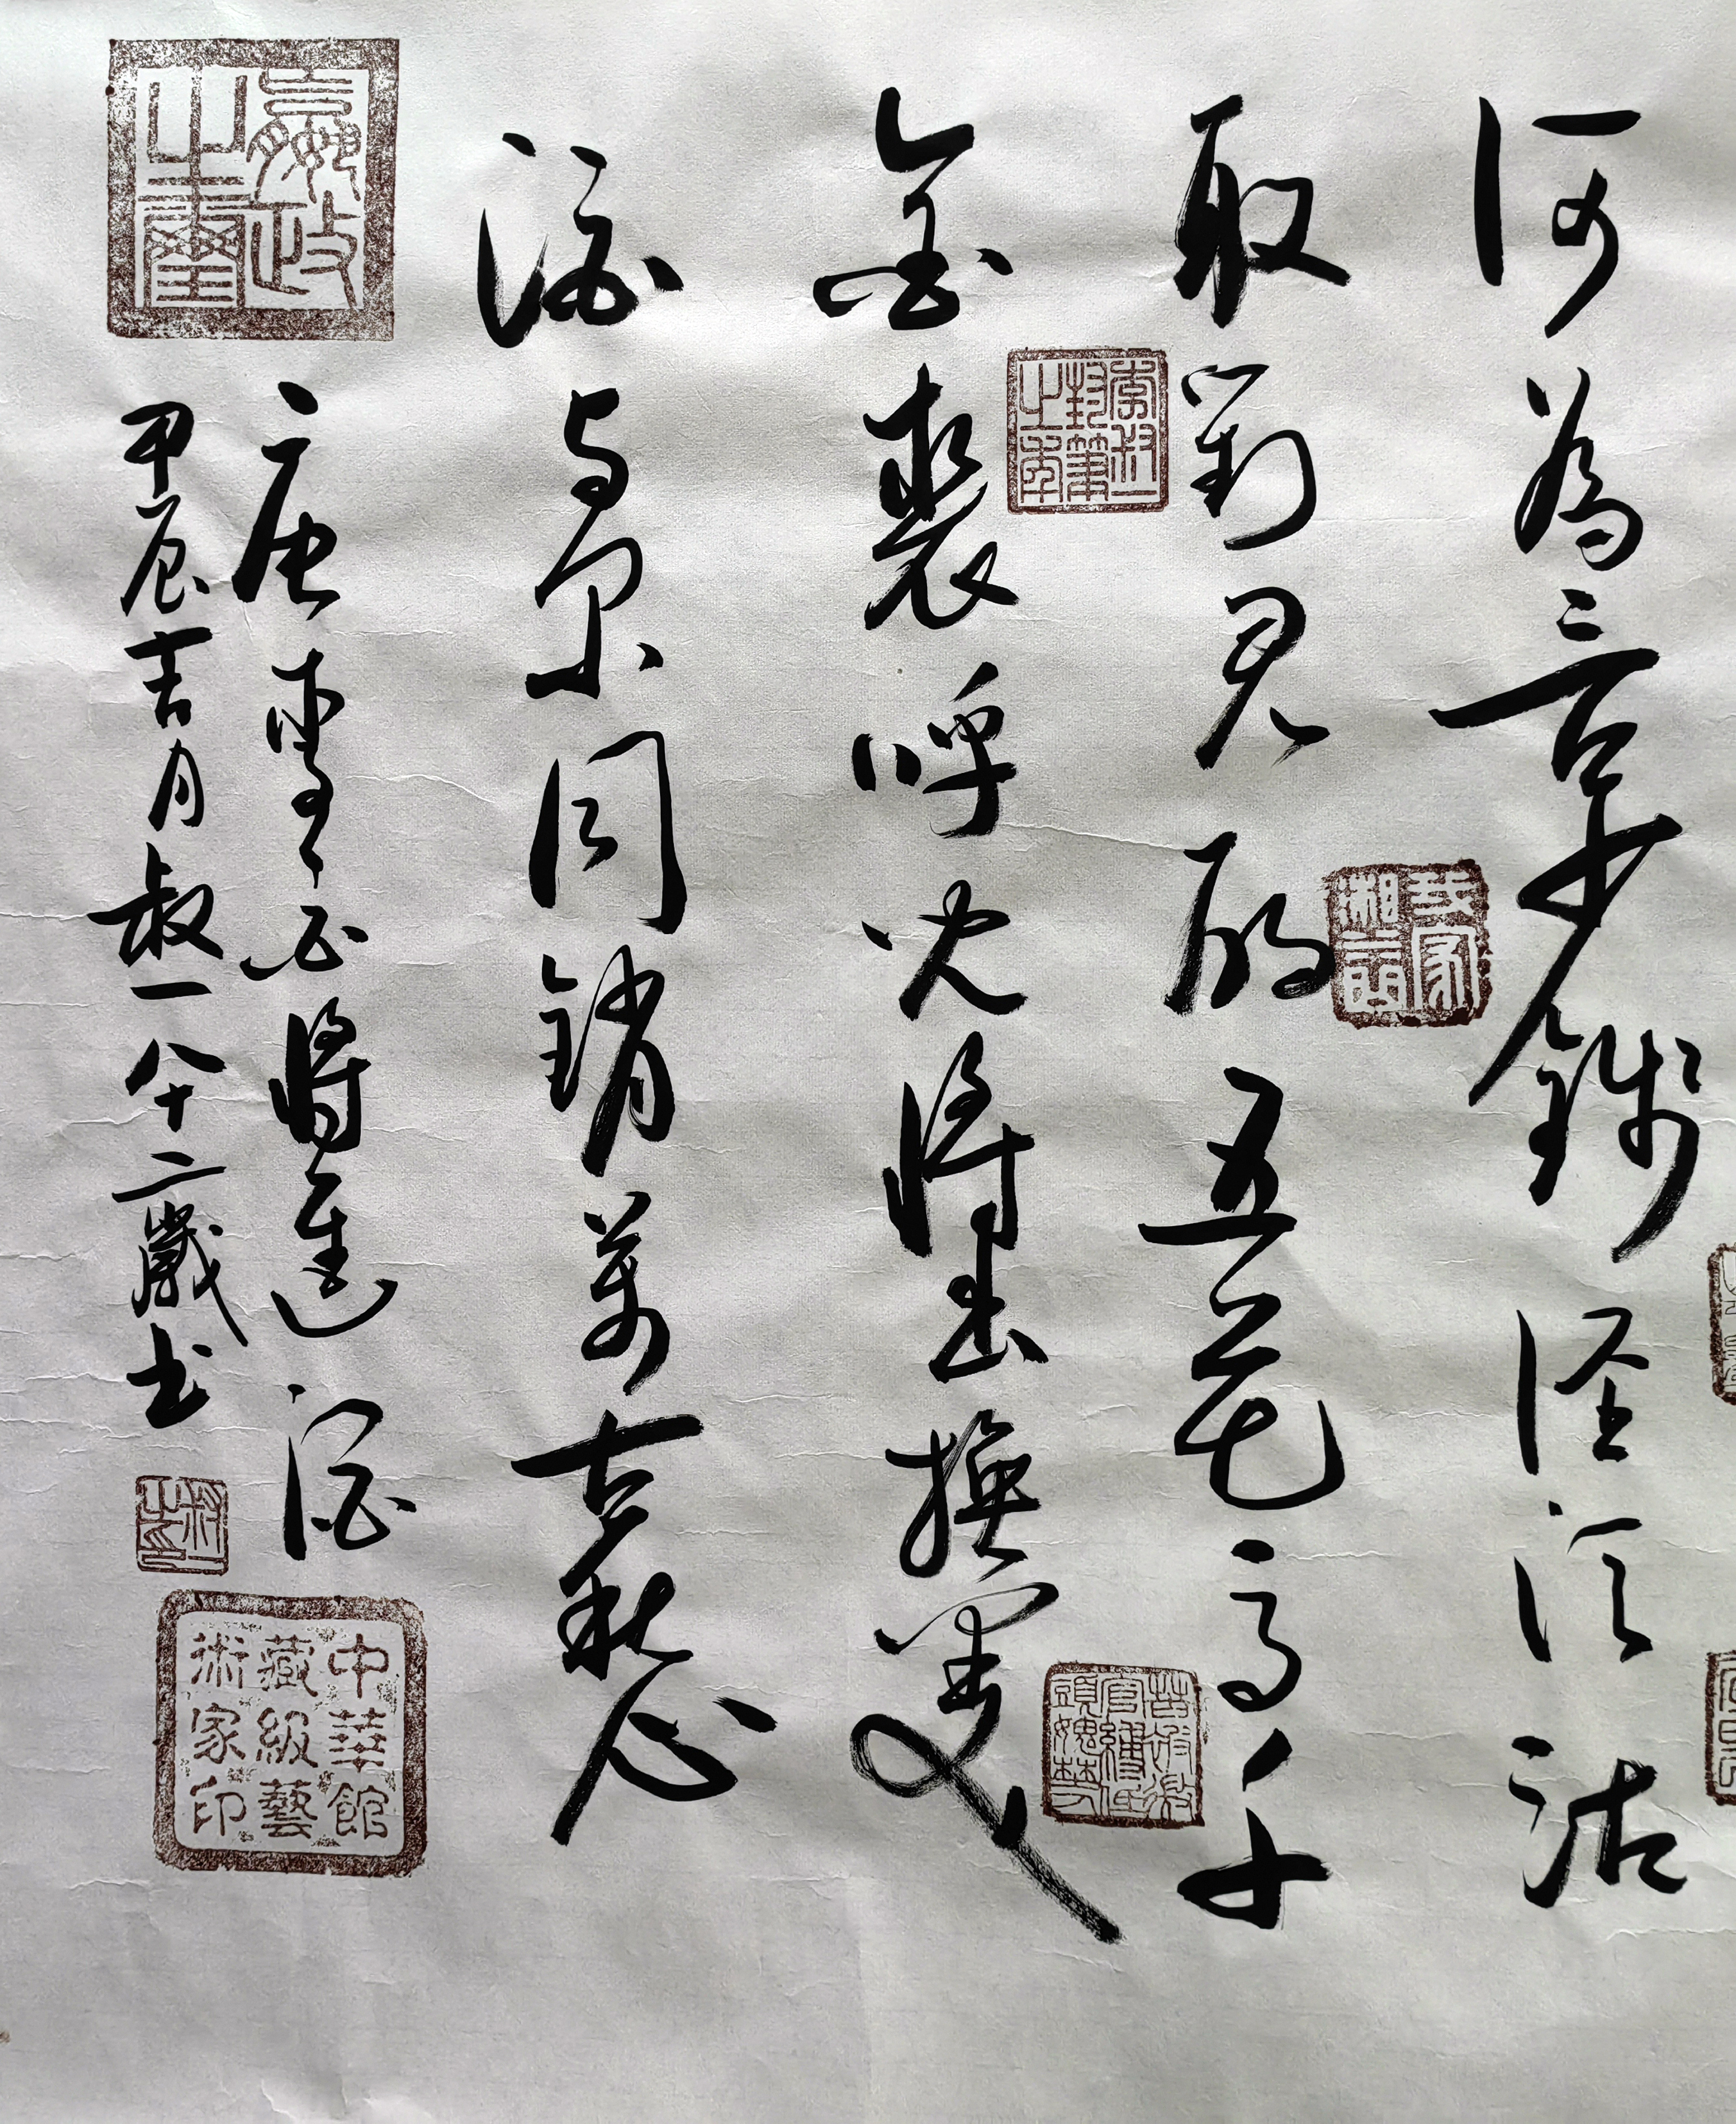 何為言少錢徑須沽
取對君酌五花馬千
金裘呼兒將出換美
酒與爾同銷萬古愁
唐李白將進酒
甲辰吉月叔一八十二歲书
中華館
藏級藝
術家印